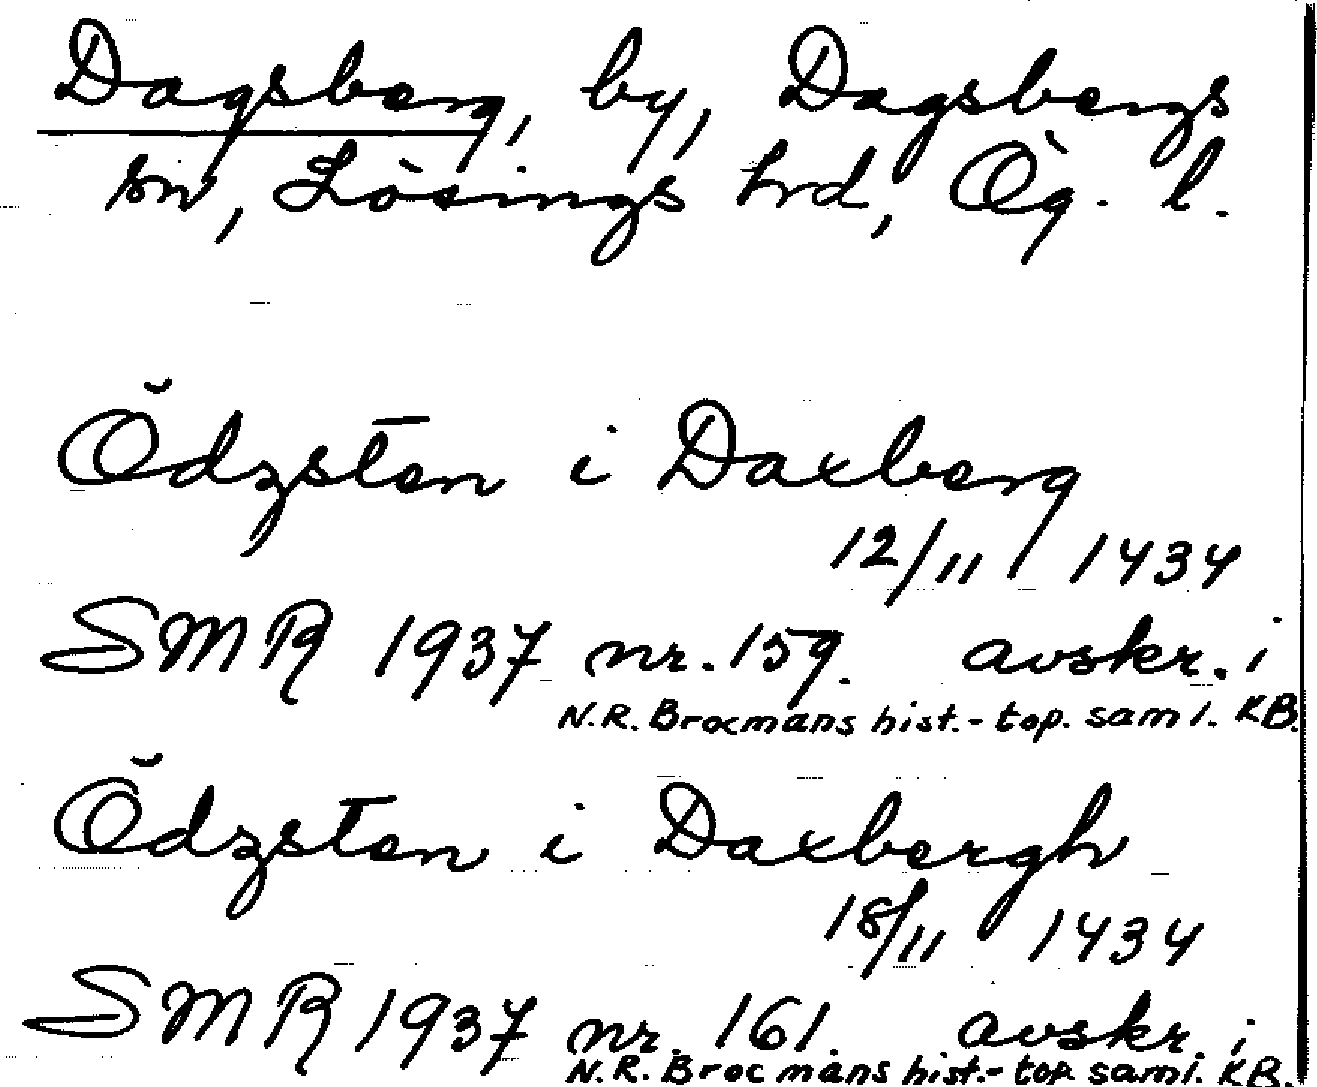 Dagsberg, by, Dagsbergs
sn, Lösings hrd, Ög. l.
Ödzsten i Daxberg
12/11 1434
SMR 1937 nr. 159. avskr. i
N.R. Brocmans hist.-top. saml. KB.
Ödzsten i Daxbergh
18/11 1434
SMR 1937 nr. 161. avskr. i
N.R. Brocmans hist.-top. saml. KB.